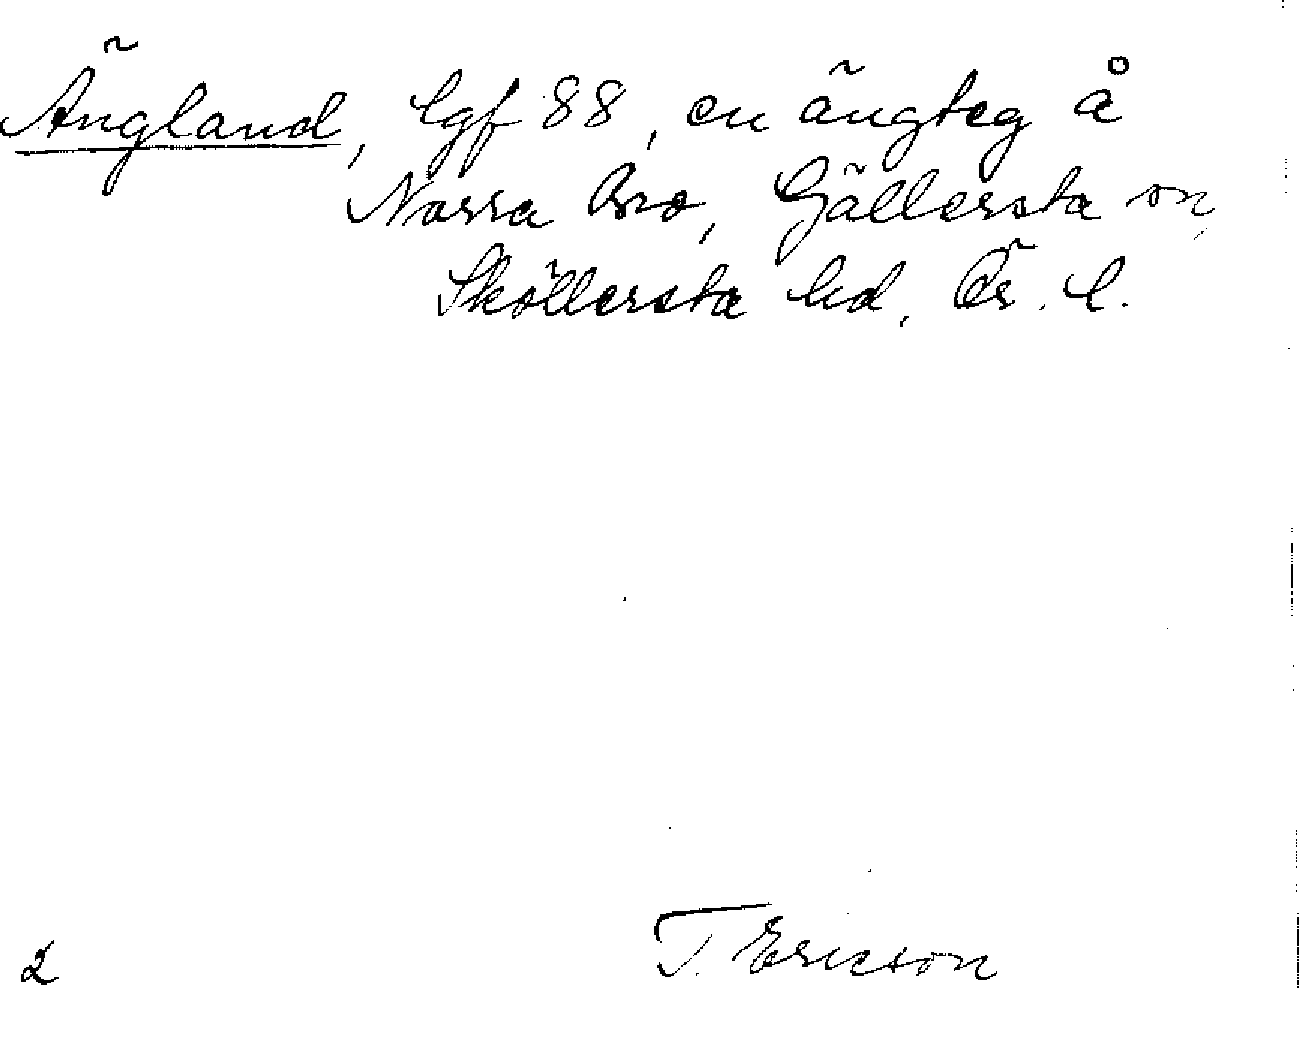 Ängland, lgf 88, en ängteg å
Norra Bro, Gällersta sn,
Sköllersta hd, Ör. l.
T. Ericson
2